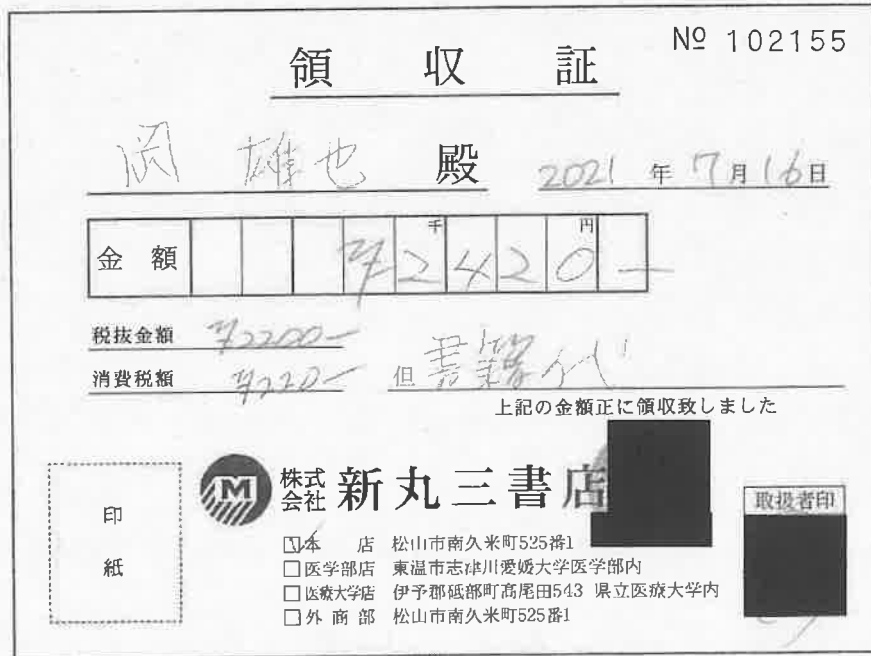 領収証
№ 102155
岡 雄也 殿
2021年7月16日
金額 千 円 ¥2420−
税抜金額 ¥2200−
消費税額 ¥220−
但 書籍代
上記の金額正に領収致しました
印紙
M
株式会社 新丸三書店
取扱者印
本店 松山市南久米町525番1
□医学部店 東温市志津川愛媛大学医学部内
□医療大学店 伊予郡砥部町高尾田543 県立医療大学内
□外商部 松山市南久米町525番1